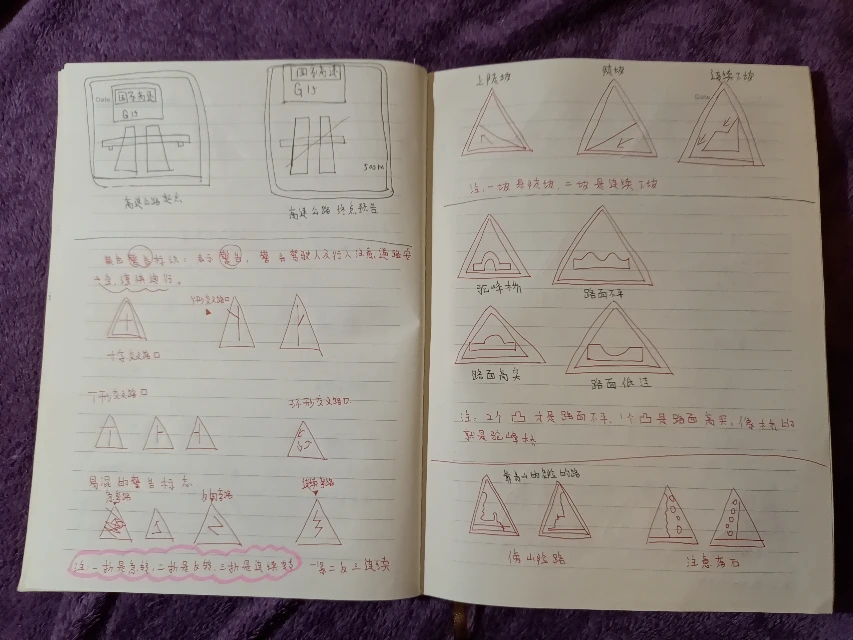 国家高速
G15
高速公路起点
国家高速
G15
500m
高速公路终点预告
黄色警告标识,表示警告,警告驾驶人及行人注意,道路安
全,谨慎通行。
十字交叉路口
Y形交叉路口
丁形交叉路口
环形交叉路口
易混的警告标志
急弯路
反向弯路
连续弯路
注:一拐是急转,二拐是反转,三拐是连续转
一急二反三连续
上陡坡
陡坡
连续下坡
注:一坡是陡坡,二坡是连续下坡
驼峰桥
路面不平
路面高突
路面低洼
注:2个凸才是路面不平,1个凸是路面高突,像桥的
就是驼峰桥
傍山险路
注意落石